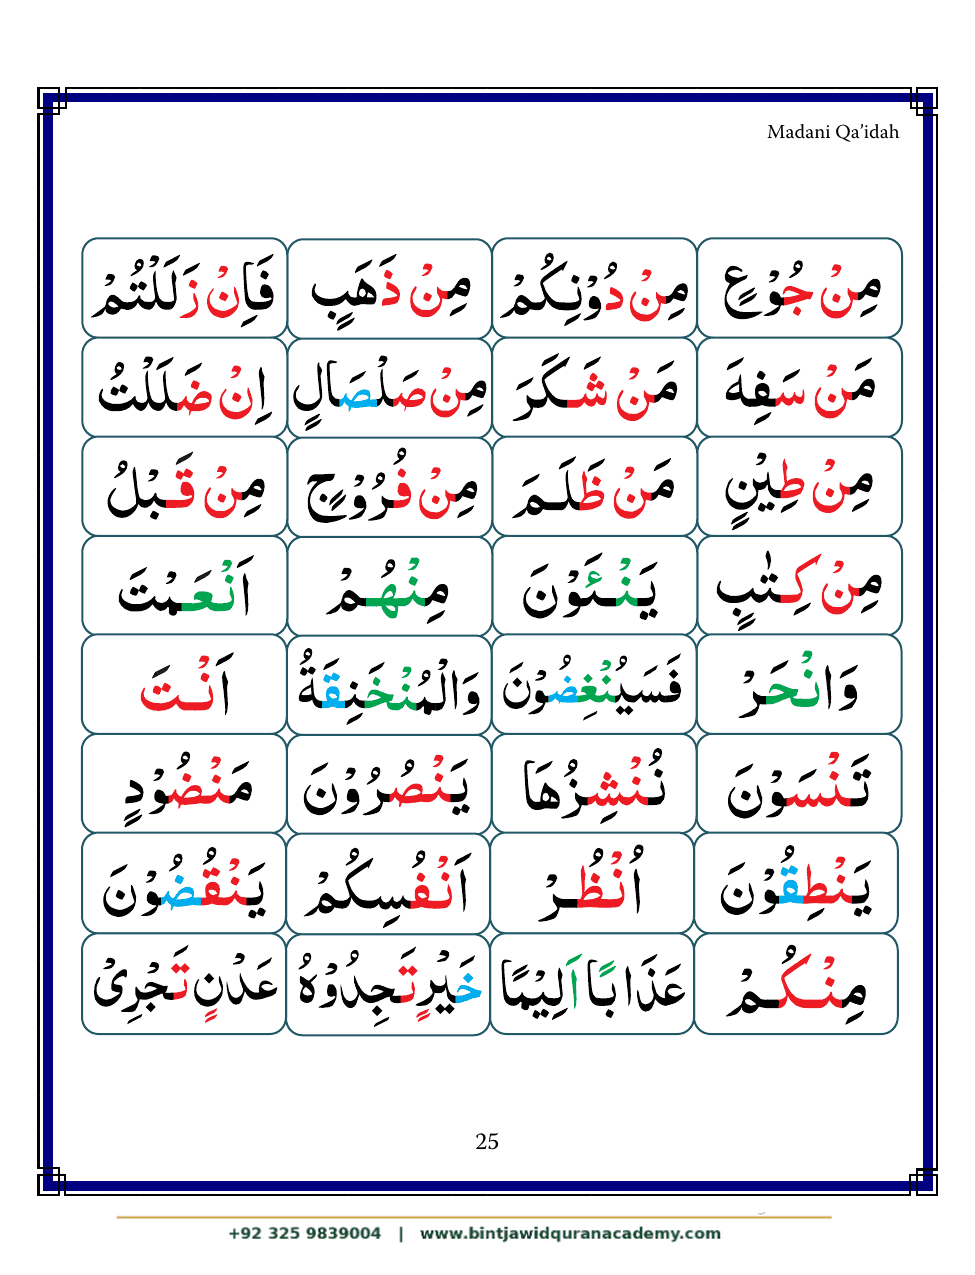 Madani Qa’idah
مِنْ جُوْعٍ مِنْ دُوْنِكُمْ مِنْ ذَهَبٍ فَاِنْ زَلَلْتُمْ
مَنْ سَفِهَ مَنْ شَكَرَ مِنْ صَلْصَالٍ اِنْ ضَلَلْتُ
مِنْ طِيْنٍ مَنْ ظَلَمَ مِنْ فُرُوْجٍ مِنْ قَبْلُ
مِنْ كِتٰبٍ يَنْئَوْنَ مِنْهُمْ اَنْعَمْتَ
وَانْحَرْ فَسَيُنْغِضُوْنَ وَالْمُنْخَنِقَةُ اَنْتَ
تَنْسَوْنَ نُنْشِزُهَا يَنْصُرُوْنَ مَنْضُوْدٍ
يَنْطِقُوْنَ اُنْظُرْ اَنْفُسِكُمْ يَنْقُضُوْنَ
مِنْكُمْ عَذَابًا اَلِيْمًا خَيْرٍ تَجِدُوْهُ عَدْنٍ تَجْرِىْ
25
+92 325 9839004 | www.bintjawidquranacademy.com